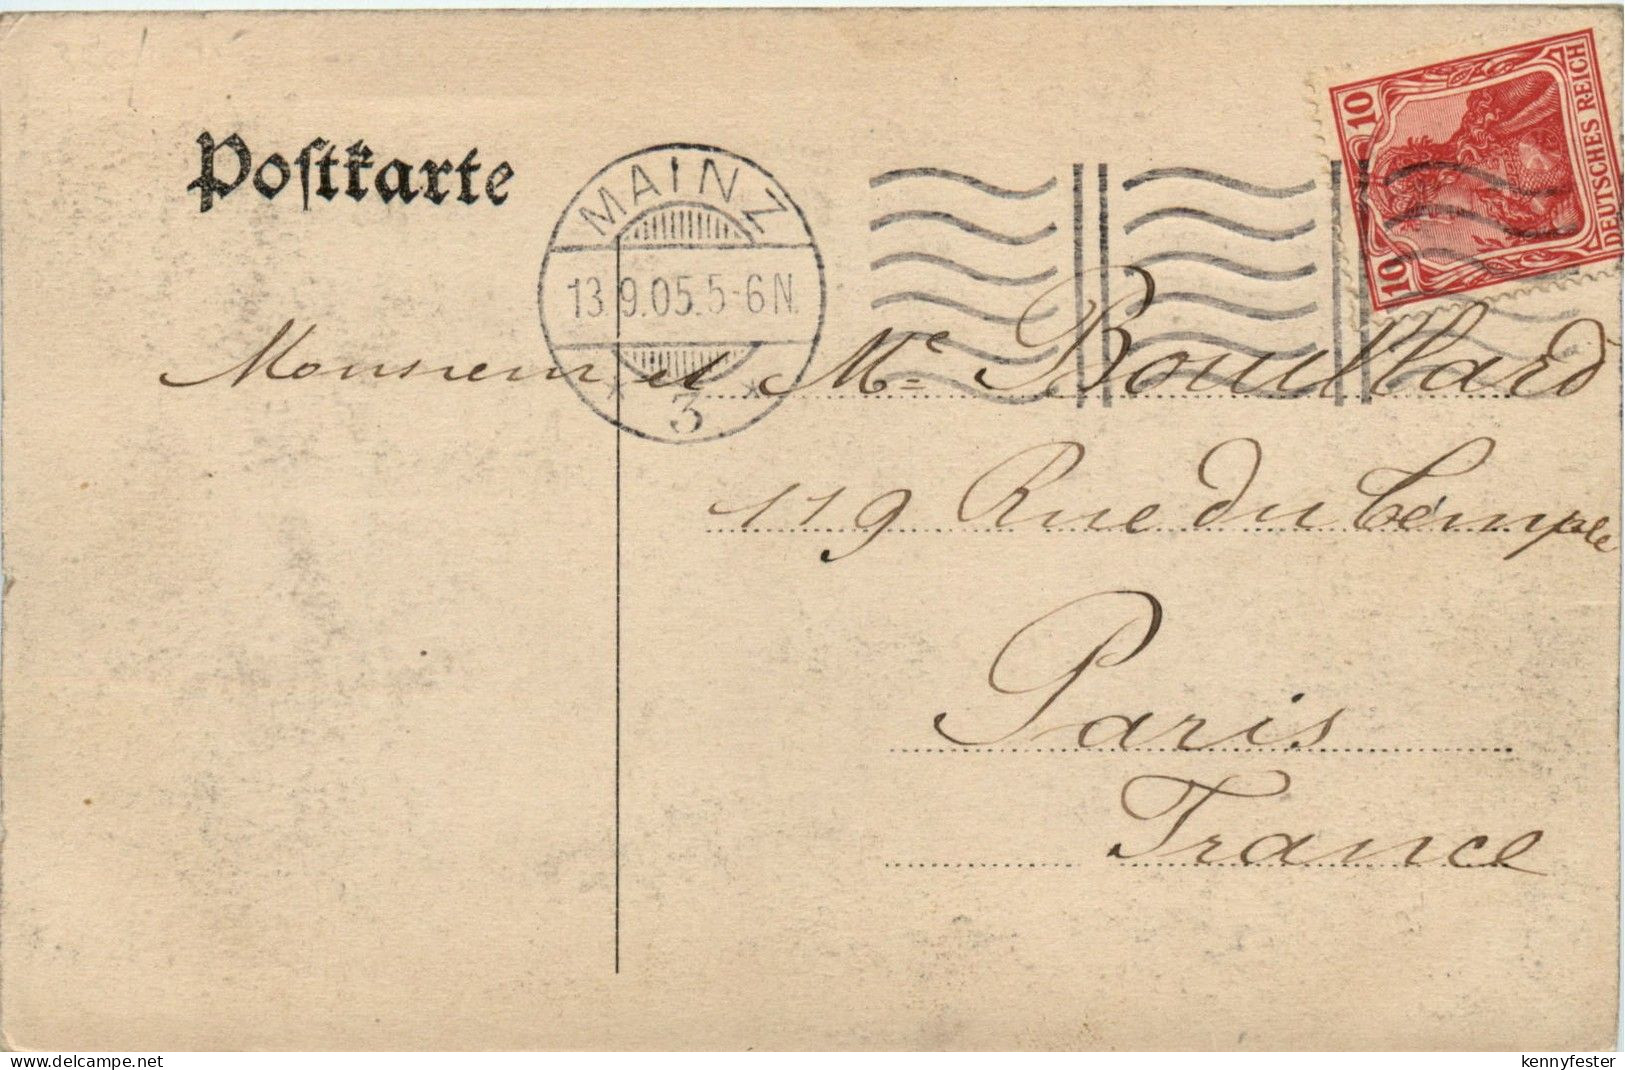 Postkarte
MAINZ
13.9.05.5-6N.
3
10
10
DEUTSCHES REICH
Monsieur et Me Bouillard
119 Rue du Témple
Paris
France
www.delcampe.net
kennyfester